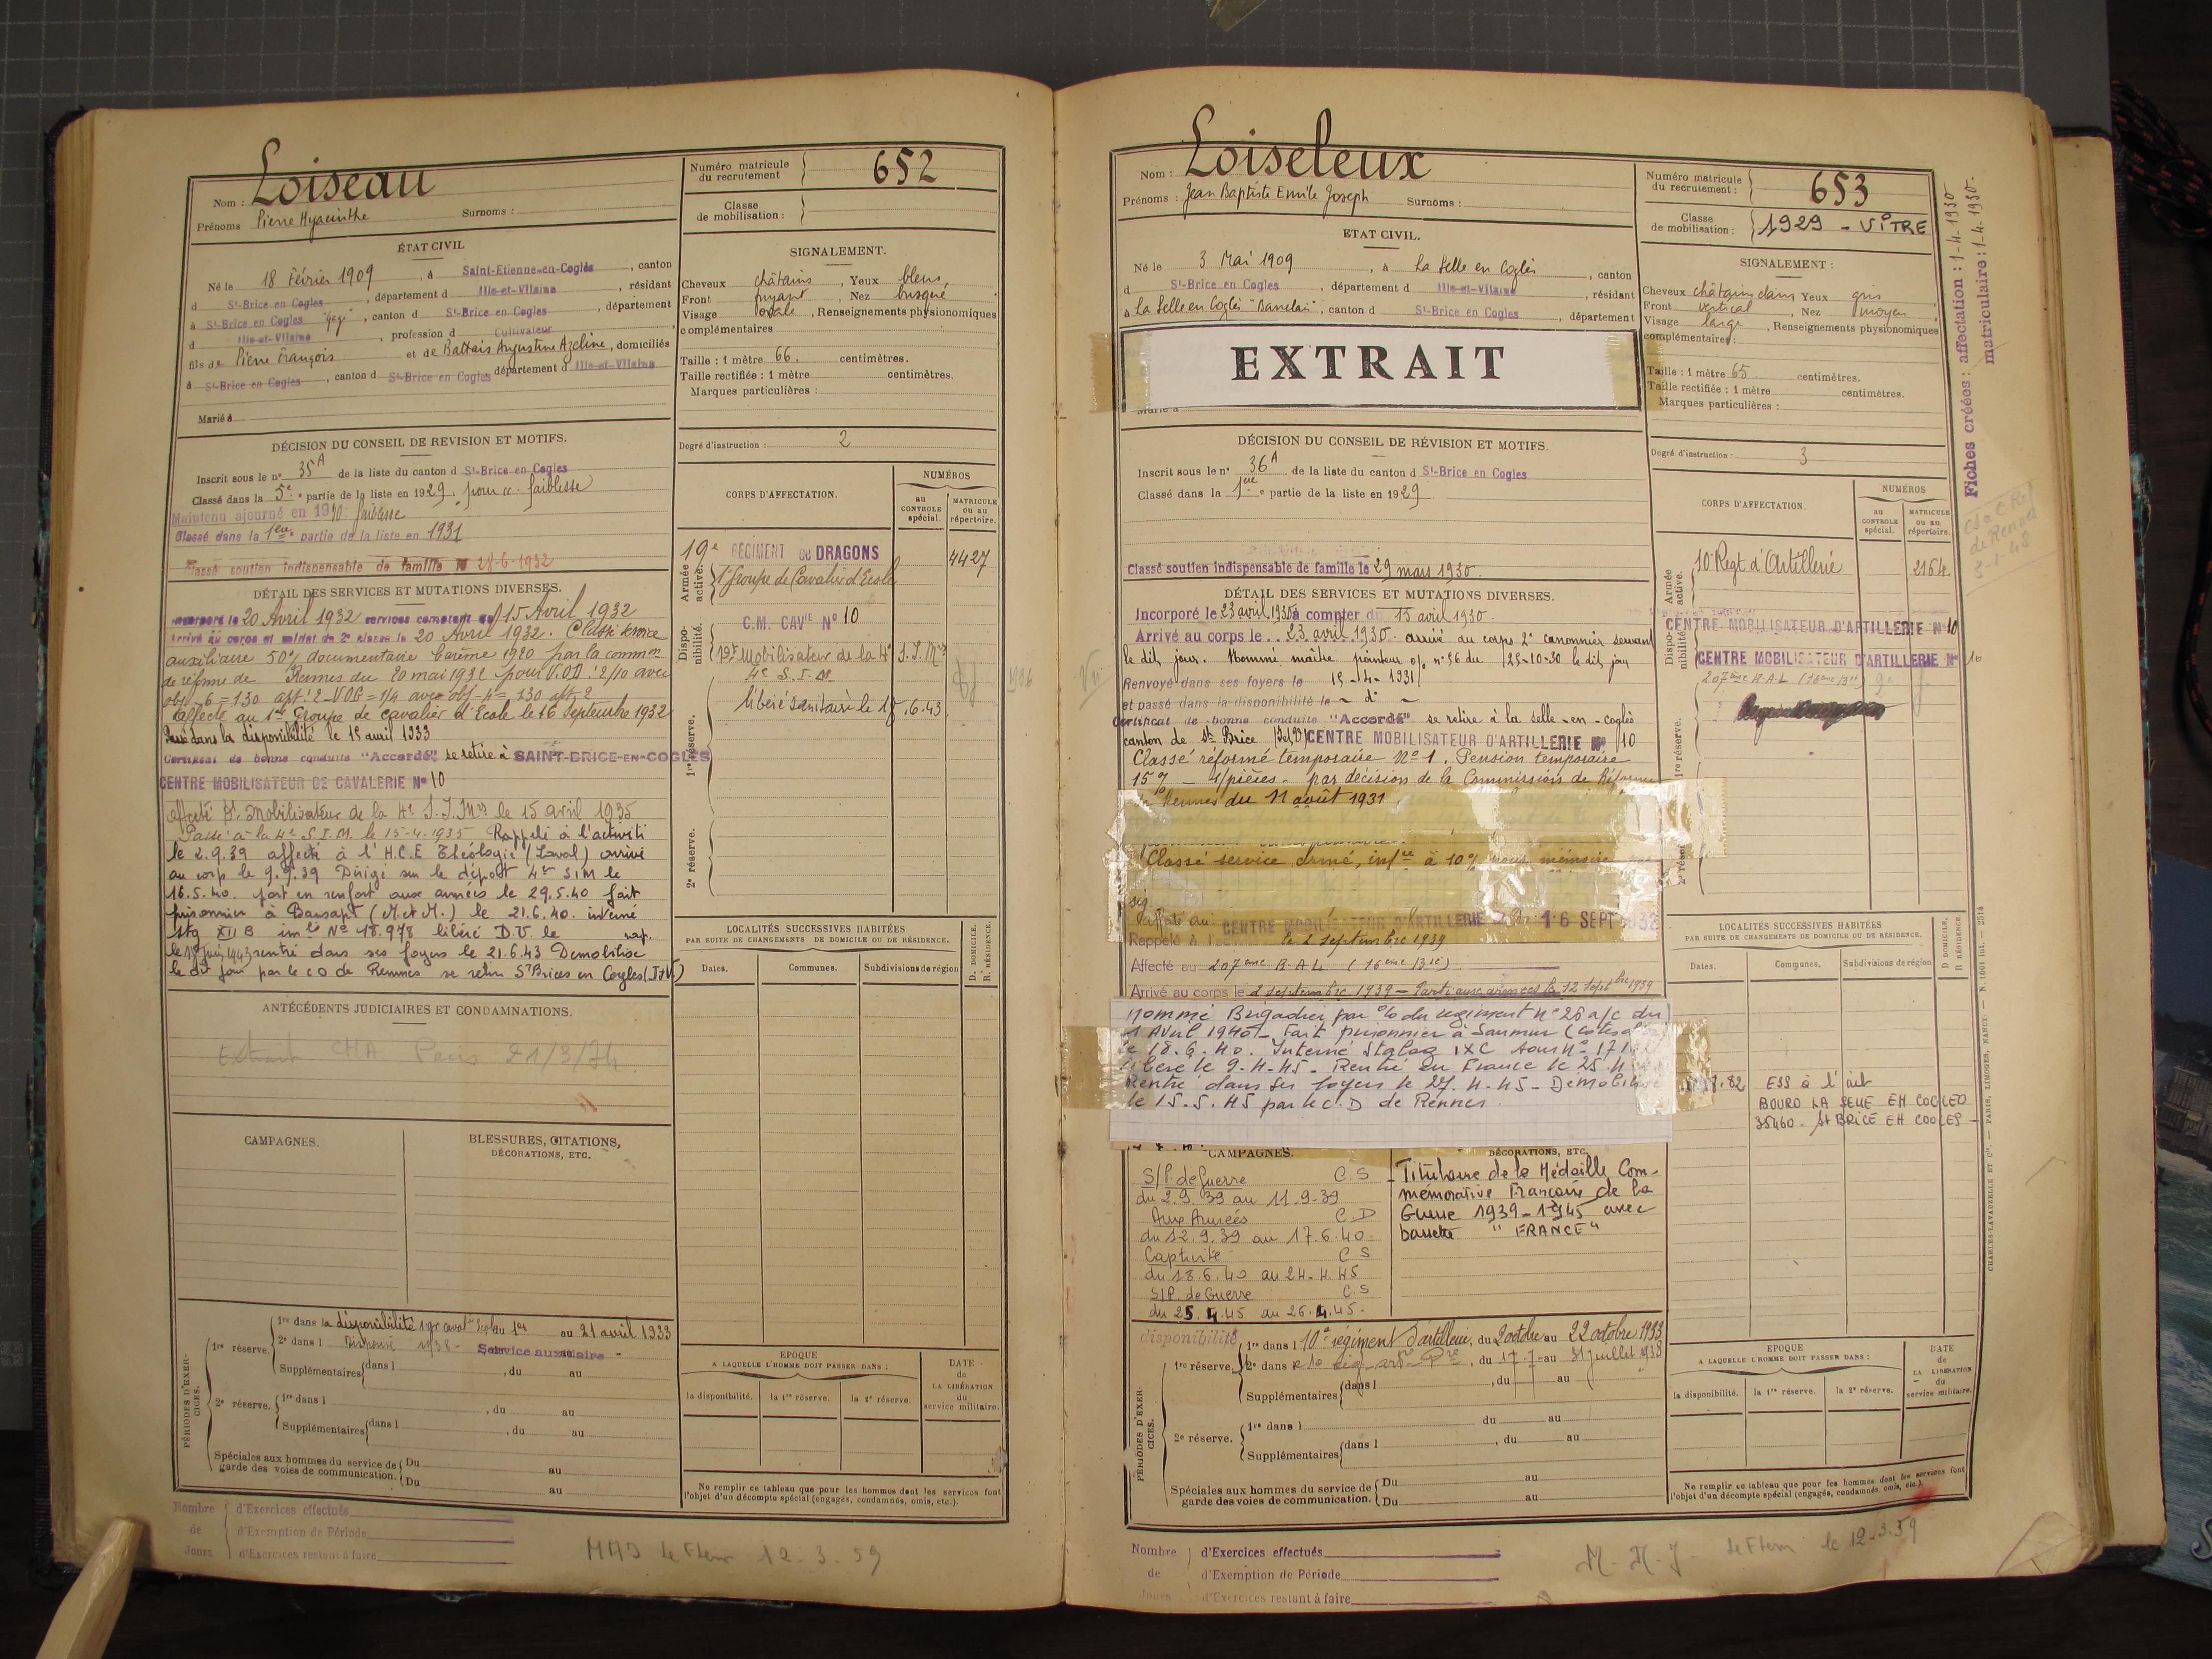 Nom : Loiseau
Prénoms Pierre Hyacinthe Surnoms :
Numéro matricule du recrutement 652
Classe de mobilisation :
ÉTAT CIVIL
Né le 18 Février 1909, à Saint-Etienne-en-Coglès, canton
d St-Brice en Cogles, département d Ille-et-Vilaine, résidant
à St-Brice en Cogles, canton d St-Brice en Cogles, département
d Ille-et-Vilaine, profession d Cultivateur
fils de Pierre François et de Battais Augustine Azeline, domiciliés
à St-Brice en Cogles, canton d St-Brice en Cogles département d Ille-et-Vilaine
Marié à
SIGNALEMENT.
Cheveux châtains, Yeux bleus,
Front fuyant, Nez busqué
Visage ovale, Renseignements physionomiques
complémentaires
Taille : 1 mètre 66. centimètres.
Taille rectifiée : 1 mètre centimètres.
Marques particulières :
Degré d'instruction : 2
DÉCISION DU CONSEIL DE REVISION ET MOTIFS.
Inscrit sous le n° 35A de la liste du canton d St-Brice en Cogles
Classé dans la 5e partie de la liste en 1929. pour faiblesse
Maintenu ajourné en 1930: faiblesse
Classé dans la 1ère partie de la liste en 1931
Classé soutien indispensable de famille le 28-6-1932
DÉTAIL DES SERVICES ET MUTATIONS DIVERSES.
Incorporé le 20 Avril 1932 services comptent du 15 Avril 1932
Arrivé au corps et soldat de 2e classe le 20 Avril 1932. Classé service
auxiliaire 50% documentaire barème 1920 par la common
de réforme de Rennes du 20 mai 1932 pour V.O.D : 2/10 avec
obj - 6 = 130 apt : 2 - VOG = 1/4 avec obj - 4 = 230 apt - 2
affecté au 1er Groupe de cavalier d'Ecole le 16 Septembre 1932
Passé dans la disponibilité le 15 avril 1933
Certificat de bonne conduite "Accordé", se retire à SAINT-BRICE-EN-COGLES
CENTRE MOBILISATEUR DE CAVALERIE N° 10
affecté Mobilisateur de la 4e S.I.Mres le 15 avril 1935
Passé à la 4e S.I.M. le 15-4-1935 Rappelé à l'activité
le 2.9.39 affecté à l'H.C.E Théologie (Laval) arrivé
au corp le 9.9.39 Dirigé sur le dépôt 4e SIM le
16.5.40. part en renfort aux armées le 29.5.40 fait
prisonnier à Bansapt (M. et M.) le 21.6.40. interné
stg XII B im le N° 18.978 libéré D.U. le rap.
le 18 Juin 1943 rentré dans ses foyers le 21.6.43 Démobilisé
le dit jour par le CD de Rennes se retire St Brice en Cogles (I&V)
CORPS D'AFFECTATION.
NUMÉROS
au CONTROLE spécial.
MATRICULE ou au répertoire.
Armée active.
19e RÉGIMENT DE DRAGONS 4427
1er Groupe de Cavalier d'Ecole
Disponibilité.
C.M. CAVIE N° 10
Mobilisateur de la 4e S.I.Mres
4e S.I.M
1re réserve.
libéré sanitaire le 18.6.43
2e réserve.
LOCALITÉS SUCCESSIVES HABITÉES
PAR SUITE DE CHANGEMENTS DE DOMICILE OU DE RÉSIDENCE.
Dates. Communes. Subdivisions de région
D. DOMICILE.
R. RÉSIDENCE.
ANTÉCÉDENTS JUDICIAIRES ET CONDAMNATIONS.
Extrait CHA Paris 21/3/74.
CAMPAGNES.
BLESSURES, CITATIONS, DÉCORATIONS, ETC.
PÉRIODES D'EXERCICES.
1re réserve.
1re dans la disponibilité 1 gr caval au 21 avril 1933
2e dans l Dispensé 1938 - Service auxiliaire -
Supplémentaires dans l , du au
2e réserve.
1re dans l , du au
Supplémentaires dans l , du au
Spéciales aux hommes du service de garde des voies de communication. Du au
Du au
EPOQUE
A LAQUELLE L'HOMME DOIT PASSER DANS :
la disponibilité. la 1re réserve. la 2e réserve.
DATE de LA LIBÉRATION du service militaire.
Ne remplir ce tableau que pour les hommes dont les services font
l'objet d'un décompte spécial (engagés, condamnés, omis, etc.).
Nombre de Jours
d'Exercices effectués
d'Exemption de Période
d'Exercices restant à faire
12.3.59
Nom : Loiseleux
Prénoms : Jean Baptiste Emile Joseph Surnoms :
Numéro matricule du recrutement : 653
Classe de mobilisation : 1929 - VITRÉ
ETAT CIVIL.
Né le 3 Mai 1909, à La Selle en Coglès, canton
d St-Brice en Cogles, département d Ille-et-Vilaine, résidant
à La Selle en Coglès, canton d St-Brice en Cogles, département
EXTRAIT
Marié à
SIGNALEMENT :
Cheveux châtain clairs Yeux gris
Front vertical, Nez moyen
Visage large, Renseignements physionomiques
complémentaires :
Taille : 1 mètre 65 centimètres.
Taille rectifiée : 1 mètre centimètres.
Marques particulières :
Degré d'instruction : 3
Fiches créées : affectation : 1-4-1930
matriculaire : 1-4-1930.
DÉCISION DU CONSEIL DE RÉVISION ET MOTIFS.
Inscrit sous le n° 36A de la liste du canton d St-Brice en Cogles
Classé dans la 1ère partie de la liste en 1929
Classé soutien indispensable de famille le 29 mars 1930.
DÉTAIL DES SERVICES ET MUTATIONS DIVERSES.
Incorporé le 23 avril 1930 à compter du 15 avril 1930.
Arrivé au corps le 23 avril 1930. arrivé au corps 2e canonnier servant
le dit jour. Nommé maître pointeur o/ n° 96 du 25-10-30 le dit jour
Renvoyé dans ses foyers le 15-4-1931
et passé dans la disponibilité le - d° -
Certificat de bonne conduite "Accordé" se retire à la selle-en-coglès
canton de St Brice (I&V) CENTRE MOBILISATEUR D'ARTILLERIE N° 10
Classé réformé temporaire N° 1. Pension temporaire
15% - par décision de la Commission de Réforme
de Rennes du 11 août 1931
Classé service armé, inf re à 10%
Affecté au : CENTRE MOBILISATEUR D'ARTILLERIE 16 SEPT 1932
Rappelé à l' le 2 septembre 1939
Affecté au 207ème R.A.L (16ème Bie)
Arrivé au corps le 2 septembre 1939 - Parti aux armées le 12 septbre 1939
Nommé Brigadier par % du régiment n° 26 a/c du
1 Avril 1940 - Fait prisonnier à Saumur
le 18.6.40. Interné Stalag IXC sous n° 171
libéré le 9-4-45. Rentré en France le 25.4
Rentré dans ses foyers le 27.4.45 - Démobilisé
le 15.5.45 par le C.D de Rennes.
CORPS D'AFFECTATION.
NUMÉROS
au CONTROLE spécial.
MATRICULE ou au répertoire.
Armée active.
10e Régt d'Artillerie 2164.
Disponibilité.
CENTRE MOBILISATEUR D'ARTILLERIE N° 10
CENTRE MOBILISATEUR D'ARTILLERIE N° 10
207ème R.A.L (16ème Bie)
1re réserve.
2e réserve.
LOCALITÉS SUCCESSIVES HABITÉES
PAR SUITE DE CHANGEMENTS DE DOMICILE OU DE RÉSIDENCE.
Dates. Communes. Subdivisions de région
D. DOMICILE.
R. RÉSIDENCE.
.82 ESS à l'
BOURG LA SELLE EN COGLES
35460. St BRICE EN COGLES -
CAMPAGNES.
S/P. de Guerre C.S
du 2.9.39 au 11.9.39
Aux Armées C.D
du 12.9.39 au 17.6.40.
Captivité C S
du 18.6.40 au 24.4.45
S/P. de Guerre C.S
du 25.4.45 au 26.4.45.
DÉCORATIONS, ETC.
Titulaire de la Médaille Com-
mémorative Française de la
Guerre 1939-1945 avec
barrette "FRANCE"
PÉRIODES D'EXERCICES.
disponibilité
1re réserve.
1re dans l 10e régiment d'artillerie, du 2 octobre au 22 octobre 1933
2e dans le 10 rég. art , du 17.7 au 31 juillet 1938
Supplémentaires dans l , du au
2e réserve.
1re dans l du au
Supplémentaires dans l , du au
Spéciales aux hommes du service de garde des voies de communication. Du au
Du au
EPOQUE
A LAQUELLE L'HOMME DOIT PASSER DANS :
la disponibilité. la 1re réserve. la 2e réserve.
DATE de LA LIBERATION du service militaire.
Ne remplir ce tableau que pour les hommes dont les services font
l'objet d'un décompte spécial (engagés, condamnés, omis, etc.).
CHARLES-LAVAUZELLE ET Cie — PARIS, LIMOGES, NANCY. — N. 1001 int. — 2514
Nombre de Jours
d'Exercices effectués
d'Exemption de Période
d'Exercices restant à faire
le 12.3.59